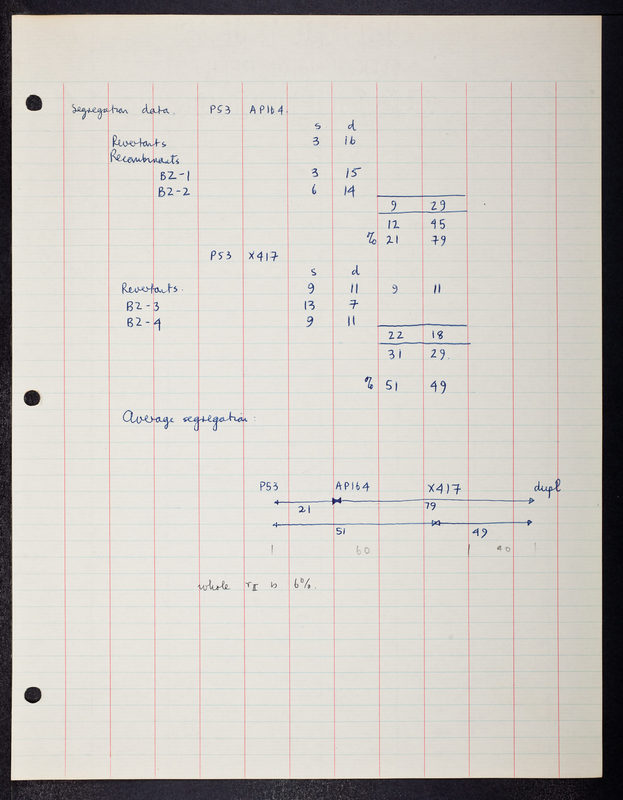 Segregation data. P53 AP164.
s d
Revertants 3 16
Recombinants
B2-1 3 15
B2-2 6 14
9 29
12 45
% 21 79
P53 X417
s d
Revertants. 9 11 9 11
B2-3 13 7
B2-4 9 11
22 18
31 29.
% 51 49
Average segregation:
P53 AP164 X417 dupl
21 79
51 49
60 40
whole rII is 6%.